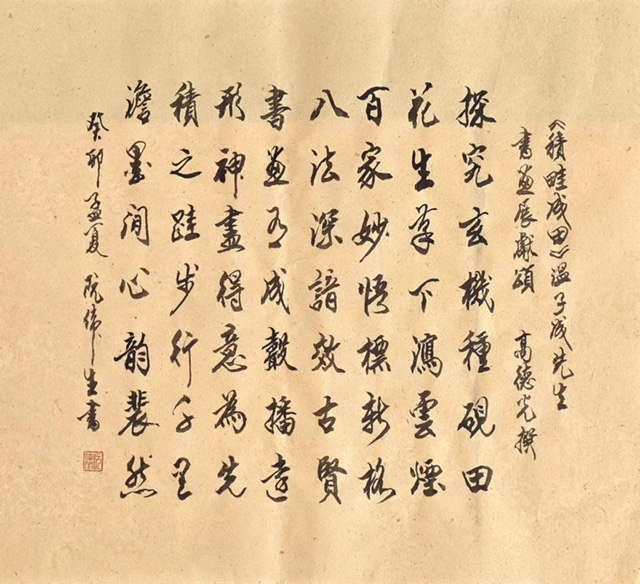 《積畦成田》溫子成先生
書畫展獻頌 高德光撰
探究玄機種硯田
花生筆下瀉雲煙
百家妙悟標新格
八法深諳效古賢
書畫有成聲播遠
形神盡得意為先
積之跬步行千里
澹墨潤心韵裴然
癸卯孟夏 阮偉生書